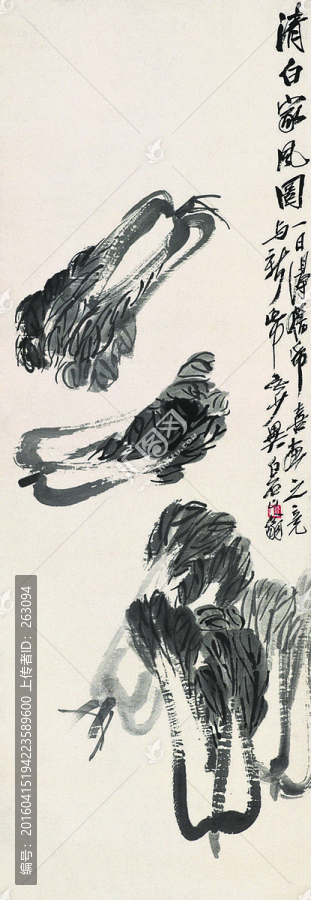 清白家风图
一日得旧纸喜画之竟
与新纸无异白石山翁
编号: 20160415194223589600 上传者ID: 263094